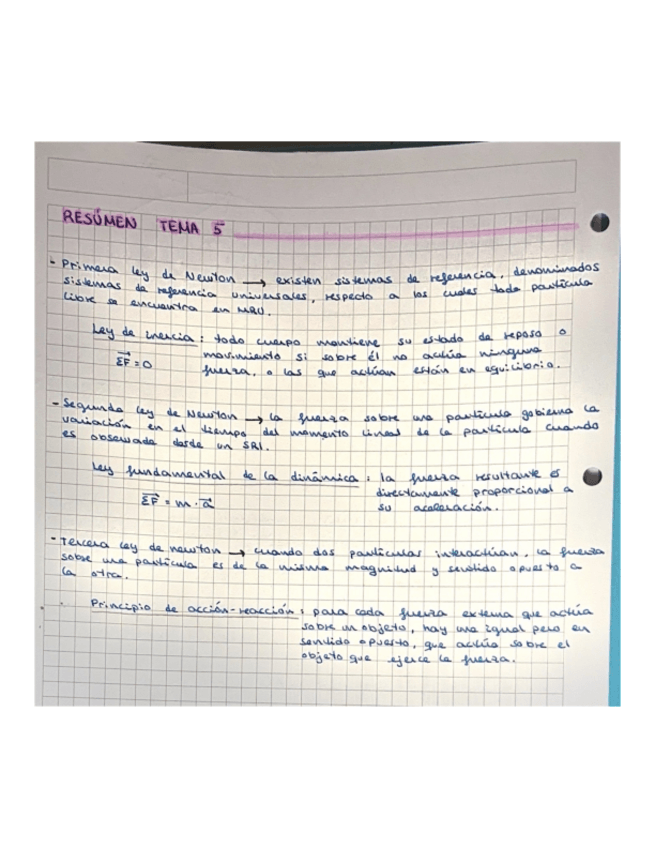 RESÚMEN TEMA 5
- Primera ley de Newton → existen sistemas de referencia, denominados
sistemas de referencia universales, respecto a los cuales toda partícula
libre se encuentra en MRU.
Ley de inercia : todo cuerpo mantiene su estado de reposo o
movimiento si sobre él no actúa ninguna
ΣF = 0 fuerza, o las que actúan están en equilibrio.
- Segunda ley de Newton → la fuerza sobre una partícula gobierna la
variación en el tiempo del momento lineal de la partícula cuando
es observada desde un SRI.
Ley fundamental de la dinámica : la fuerza resultante es
directamente proporcional a
ΣF = m · a su aceleración.
- Tercera ley de newton → cuando dos partículas interactúan, la fuerza
sobre una partícula es de la misma magnitud y sentido opuesto a
la otra.
Principio de acción-reacción : para cada fuerza externa que actúa
sobre un objeto, hay una igual pero en
sentido opuesto, que actúa sobre el
objeto que ejerce la fuerza.